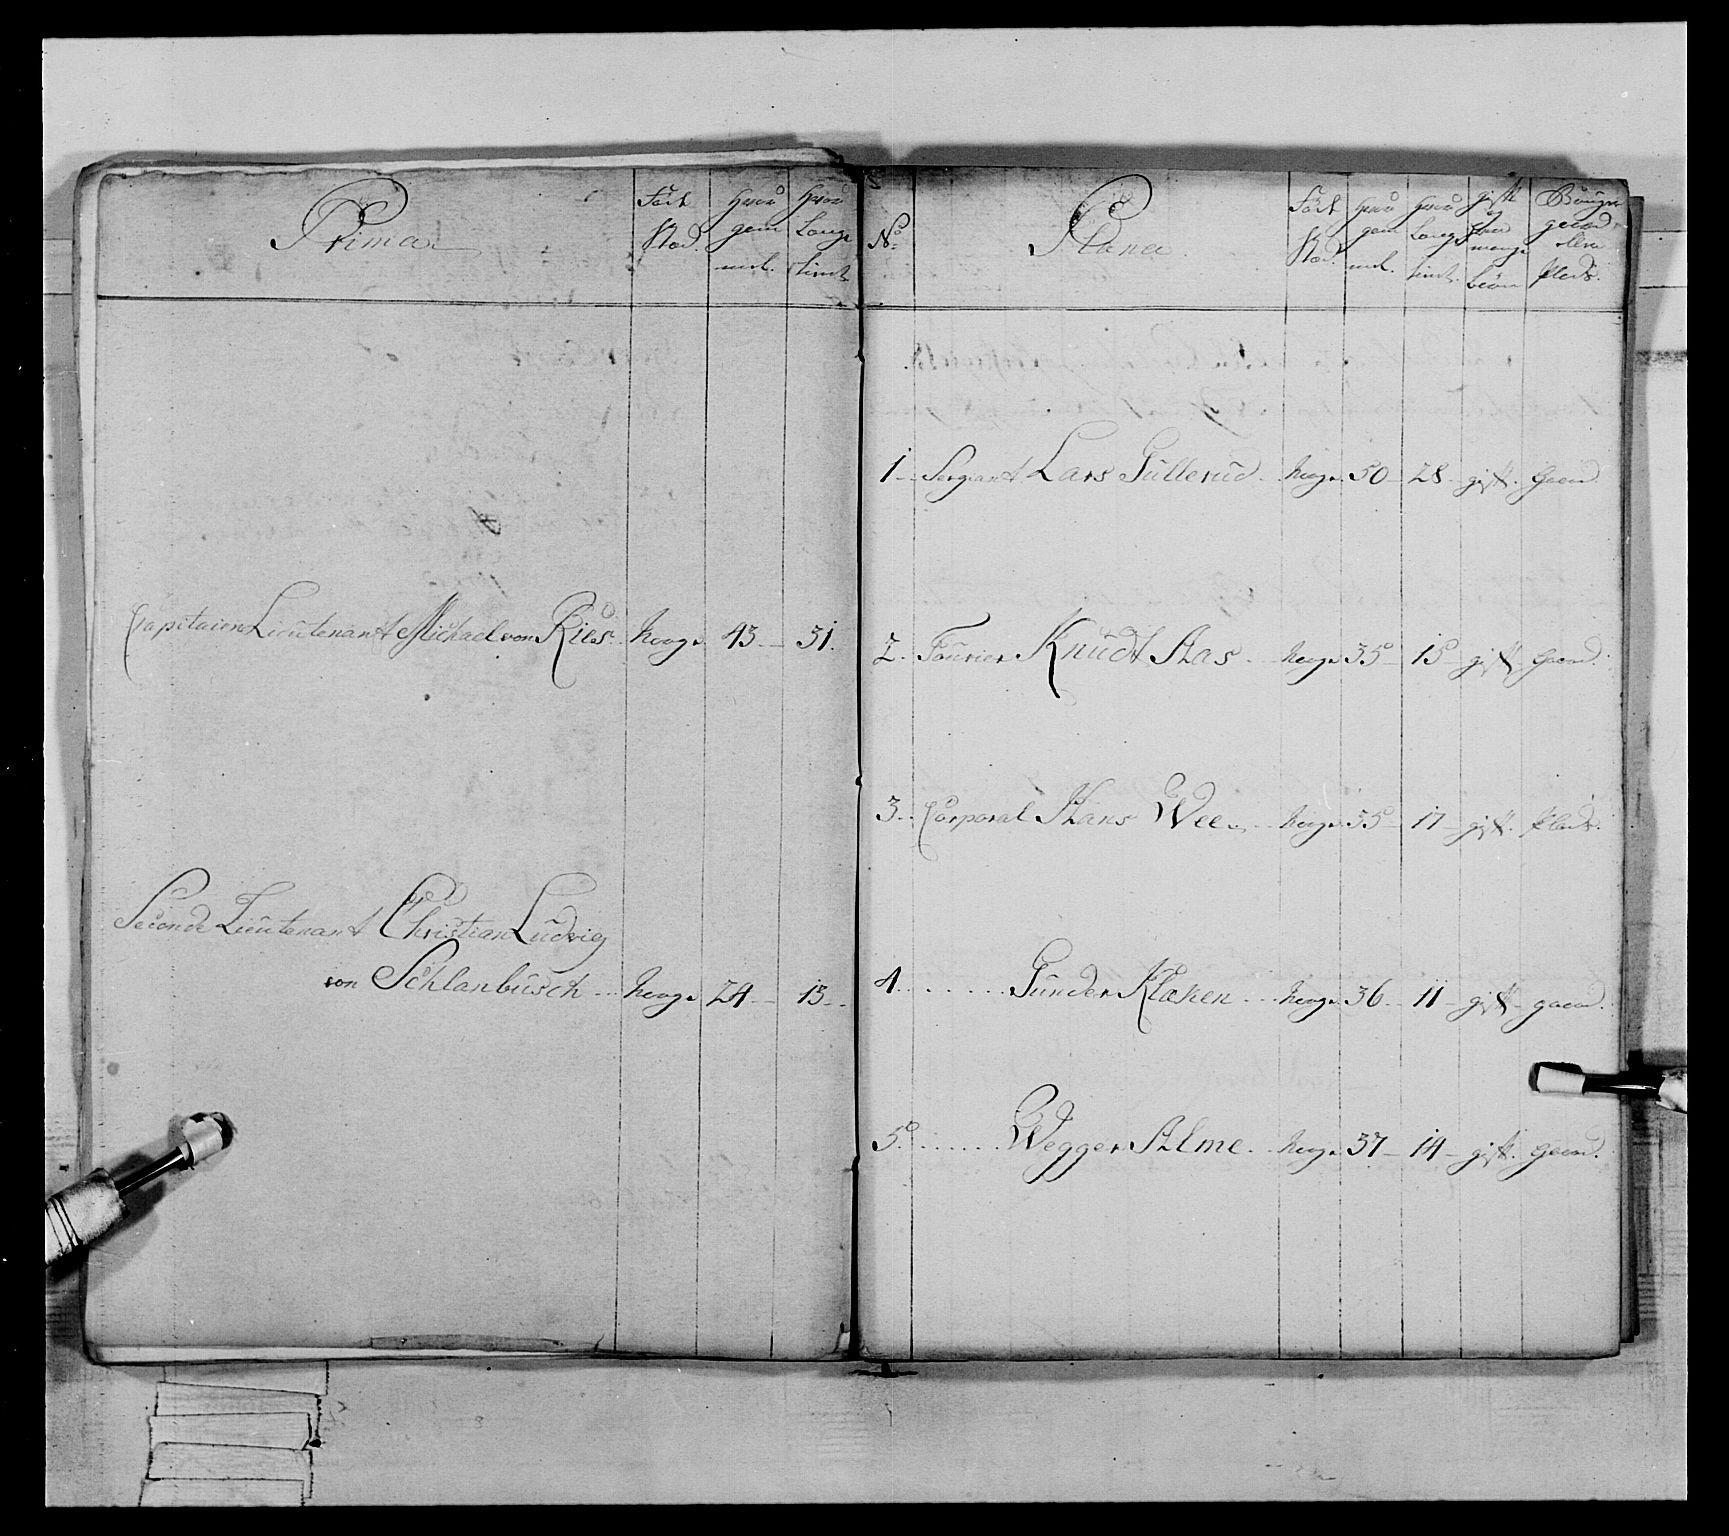 Prima
Föd Stæd.
Hvor gam mel.
Hvor Længe tient.
Capitaien Lieutenant Michael von Ries. Norge. 43. 31.
Seconde Lieutenant Christian Ludvig
von Schlanbusch Norge 24 15
No
Plana.
Föd Stæd.
Hvor gam mel.
Hvor Længe tient.
gift og hvor mange börn
gaard eller Plads.
1 Sergeant Lars Gullerud Norge 50 28 gift. Gaard.
2. Fourier Knudt Aas Norge 35 15 gift Gaard.
3. Corporal Hans Wee Norge 35 17 gift. Plads.
4 Gunder Klæken Norge 36 11 gift gaard.
5. Wegger Alme. Norge 37 14 gift. Gaard.